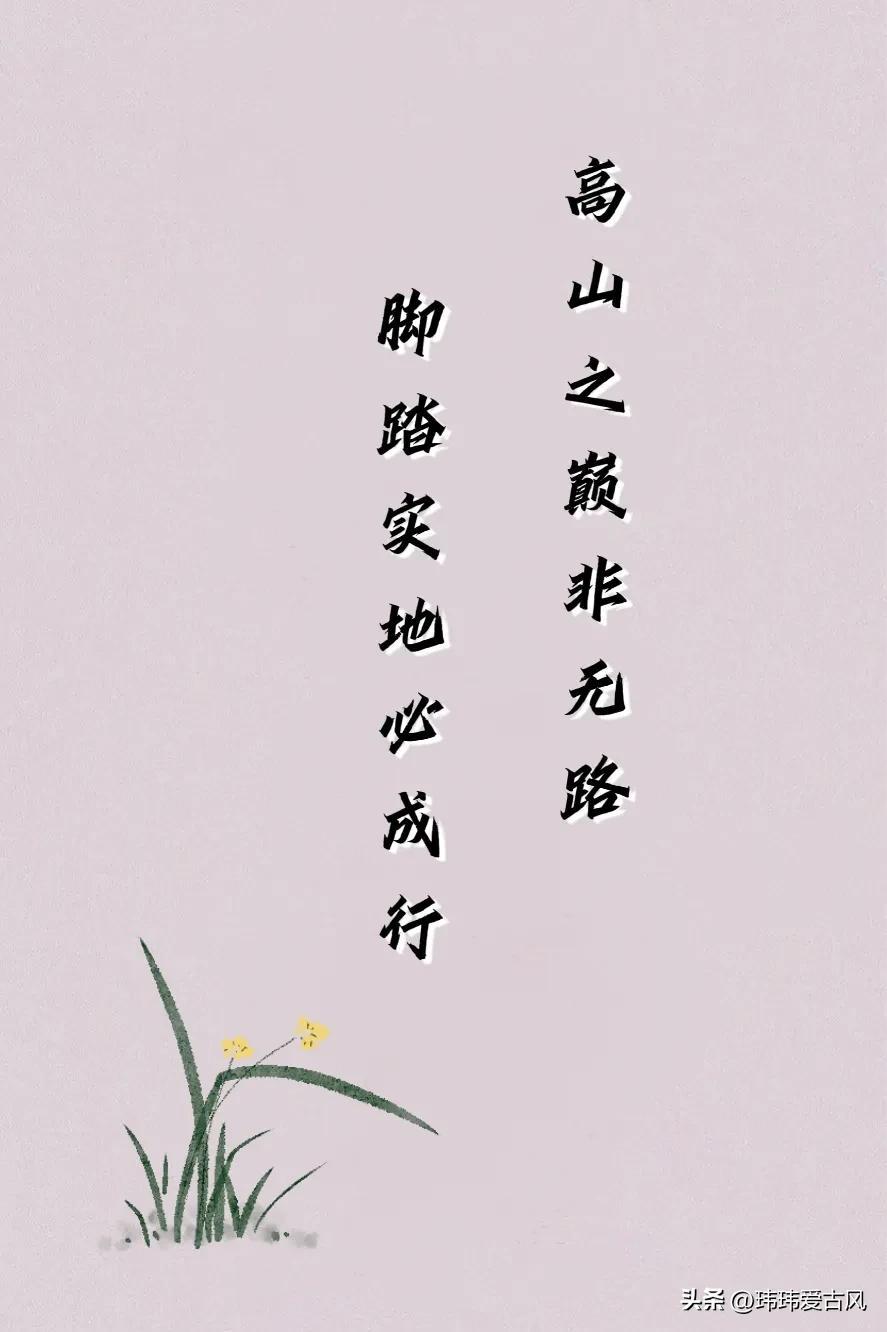 高山之巅非无路
脚踏实地必成行
头条 @玮玮爱古风